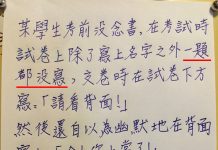 某學生考前沒念書，在考試時
試卷上除了寫上名字之外一題
都沒寫，交卷時在試卷下方
寫：「請看背面！」
然後還自以為幽默地在背面